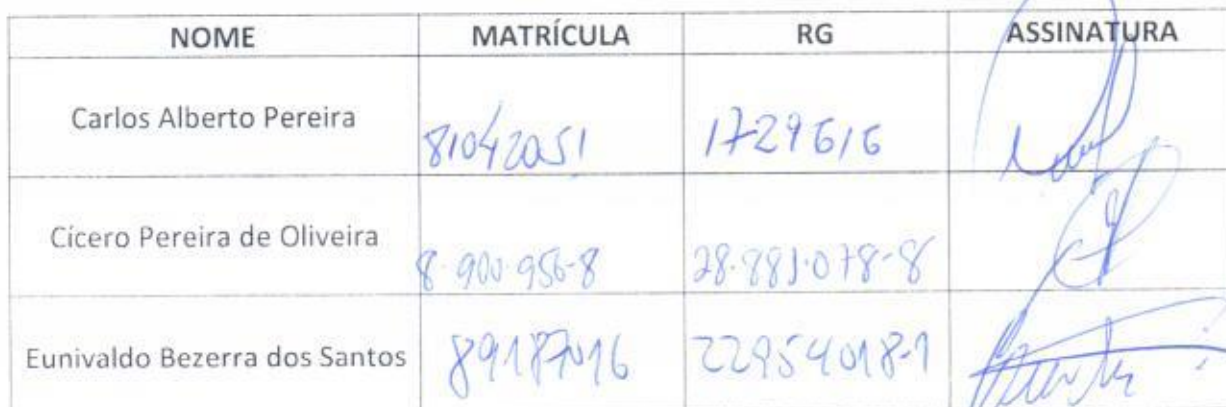 NOME MATRÍCULA RG ASSINATURA
Carlos Alberto Pereira 81042051 1729616
Cícero Pereira de Oliveira 8.900.956-8 28.881.078-8
Eunivaldo Bezerra dos Santos 89187016 22954018-1